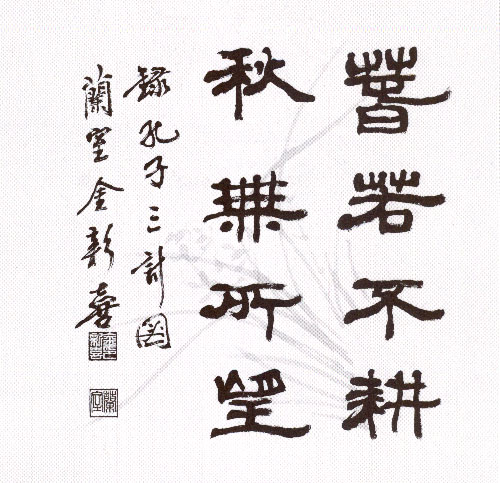 春若不耕
秋無所望
錄孔子三計圖
蘭室金新喜